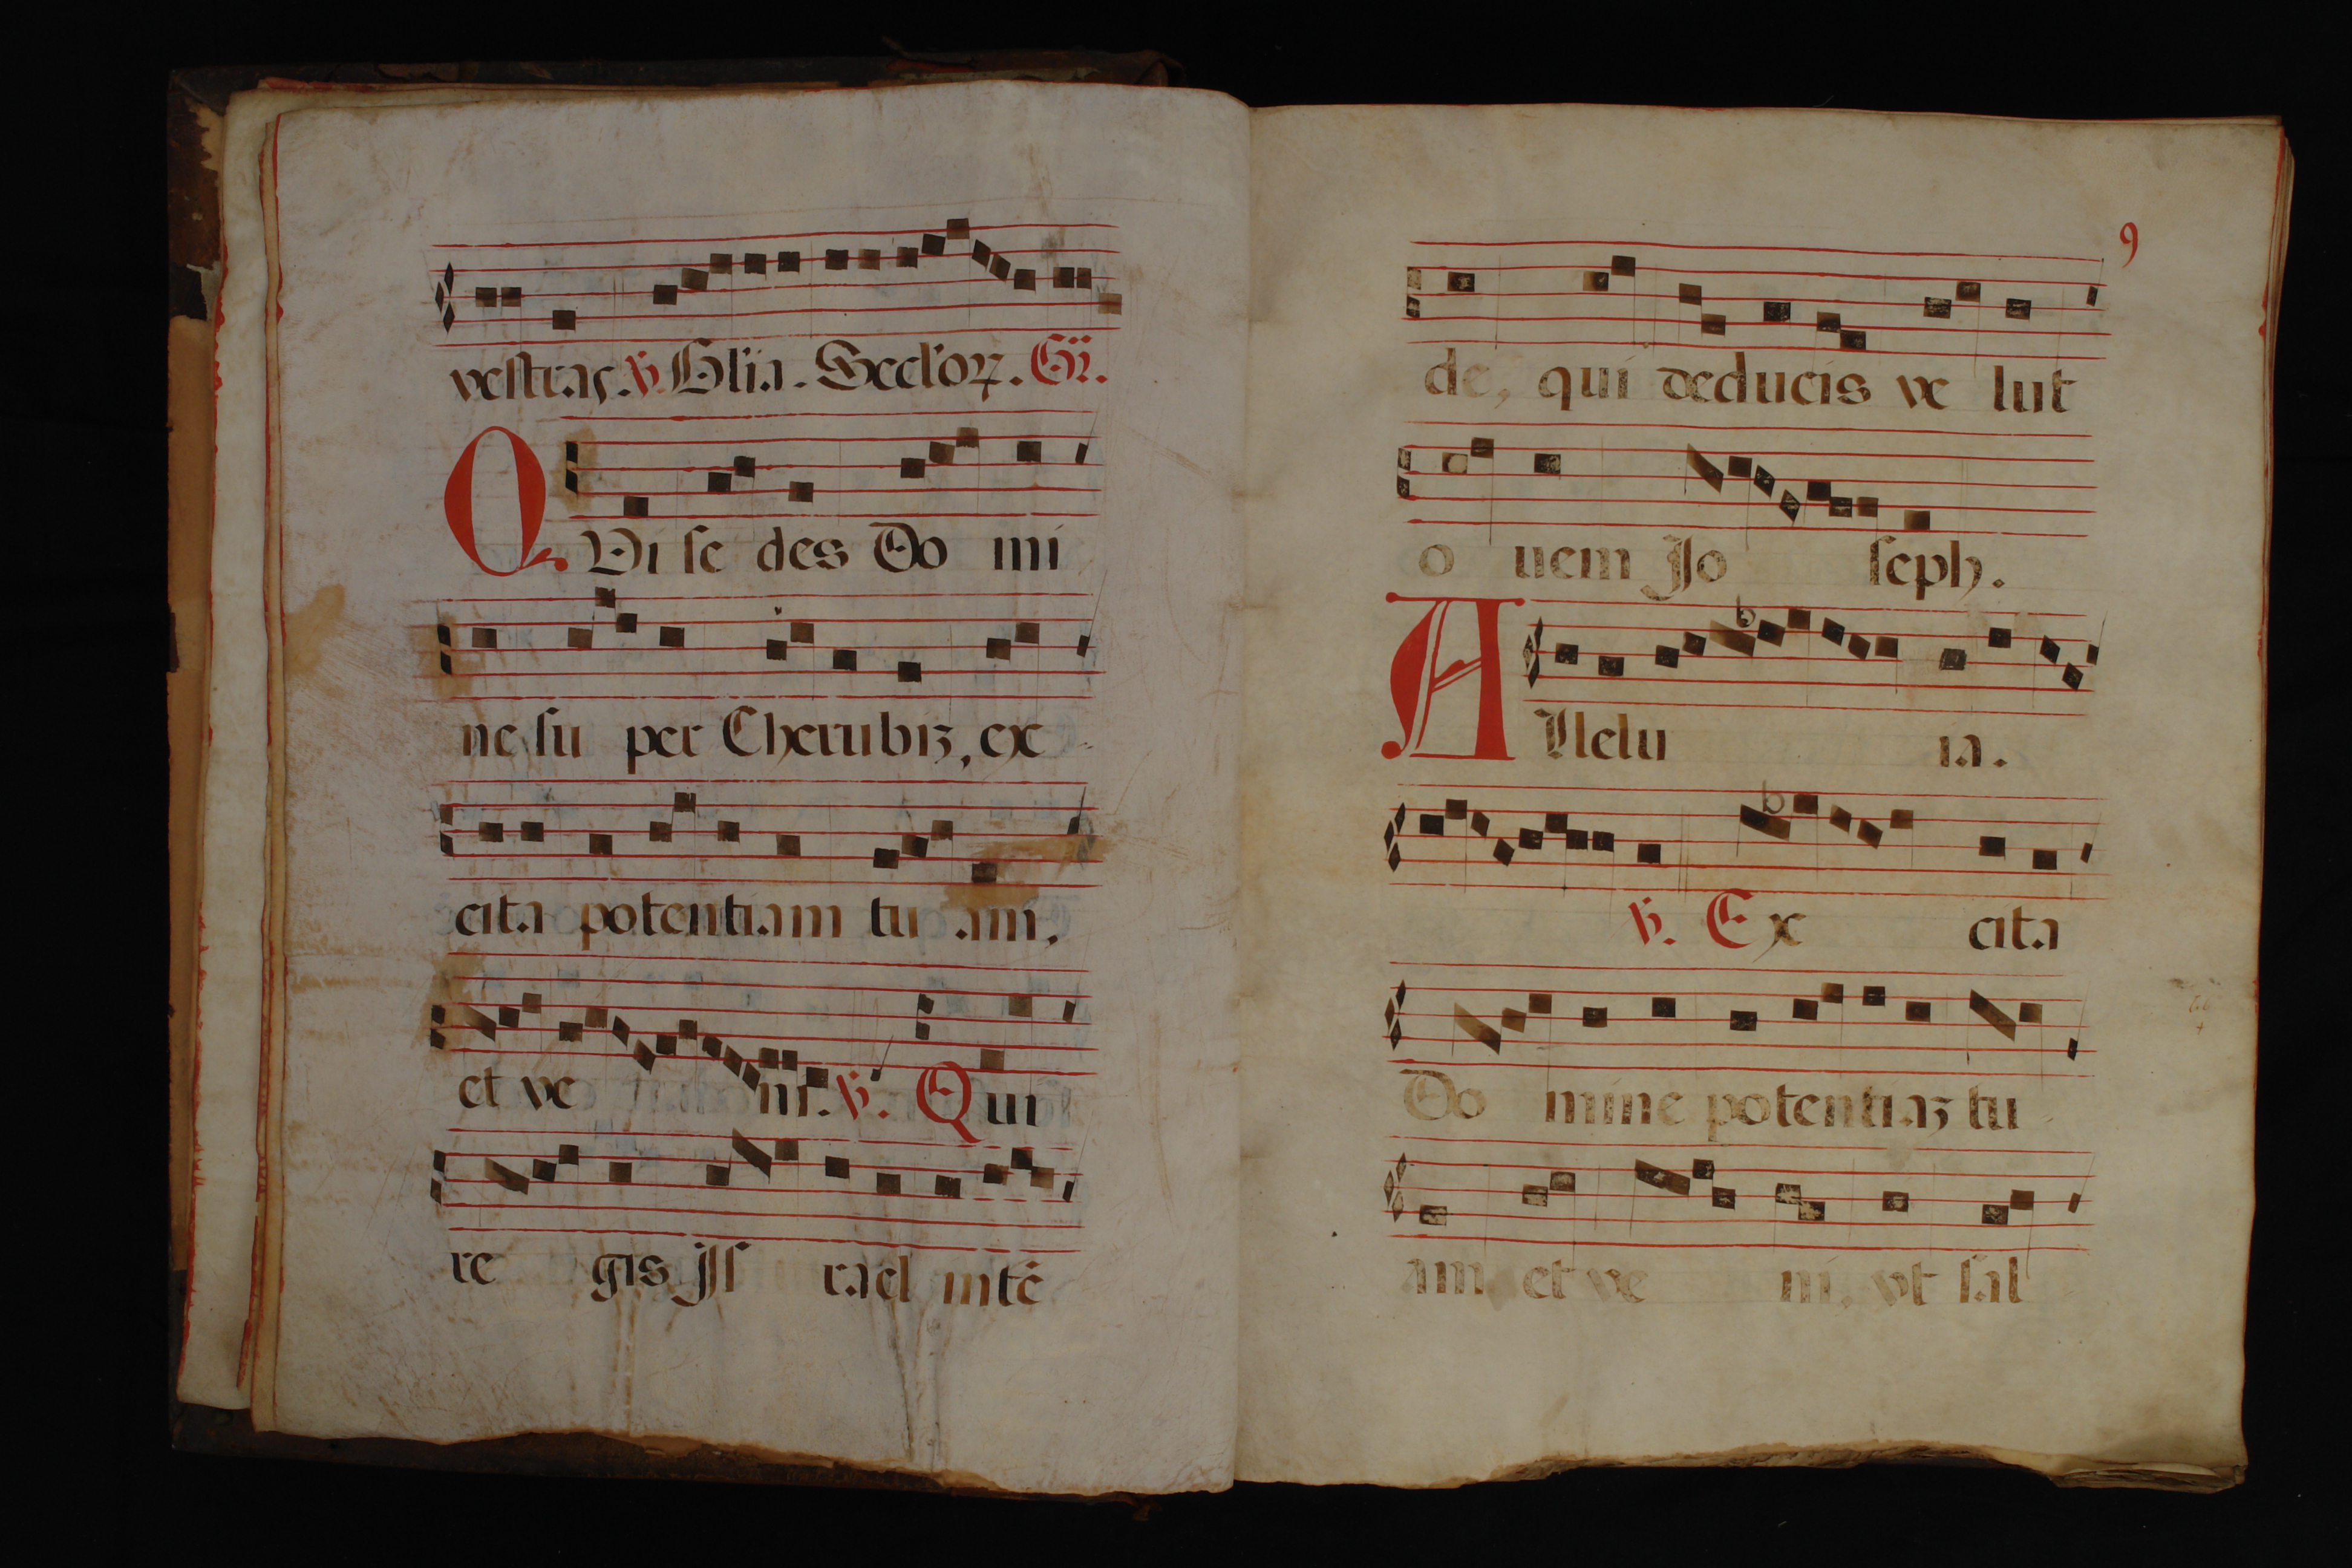 vestras. ℣. Glīa. Secloꝝ. Gr̄.
QVi se des Do mi
ne su per Cherubiꝫ, ex
cita potentiam tu am,
et ve ni. ℣. Qui
re gis Js rael intē
9
de, qui deducis ve lut
o uem Jo seph.
ALlelu ia.
℣. Ex cita
Do mine potentiaꝫ tu
am et ve ni, vt sal